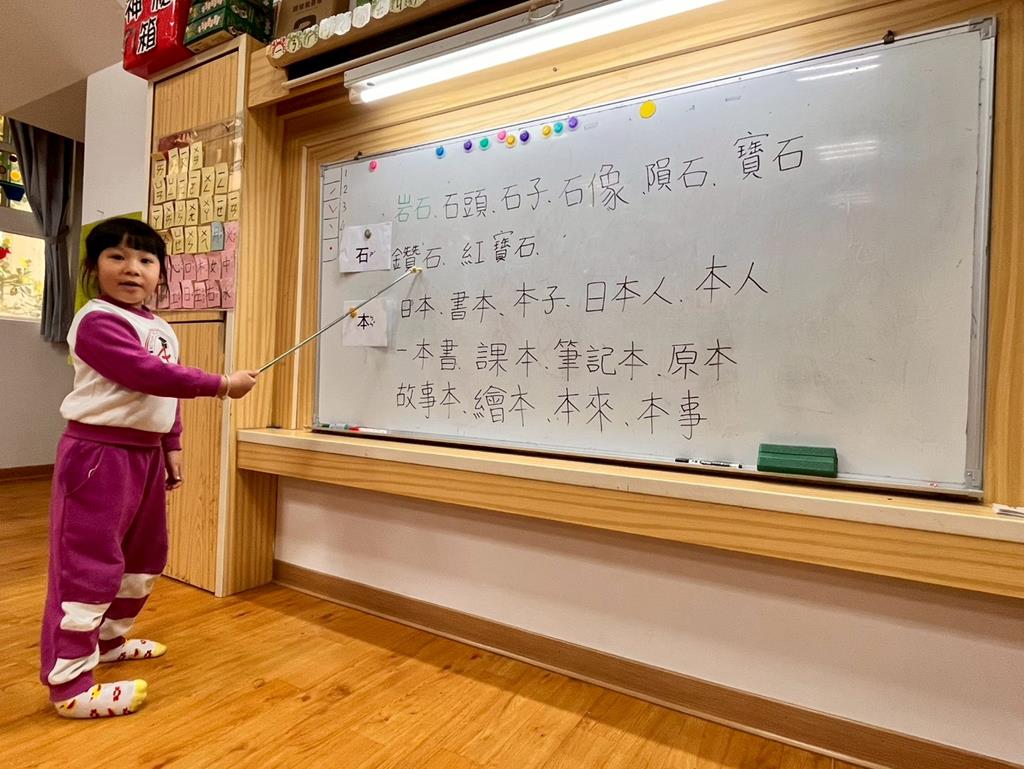 神秘箱
1
2
3
岩石、石頭、石子、石像、隕石、寶石
石
鑽石、紅寶石、
本
日本、書本、本子、日本人、本人
一本書、課本、筆記本、原本
故事本、繪本、本來、本事